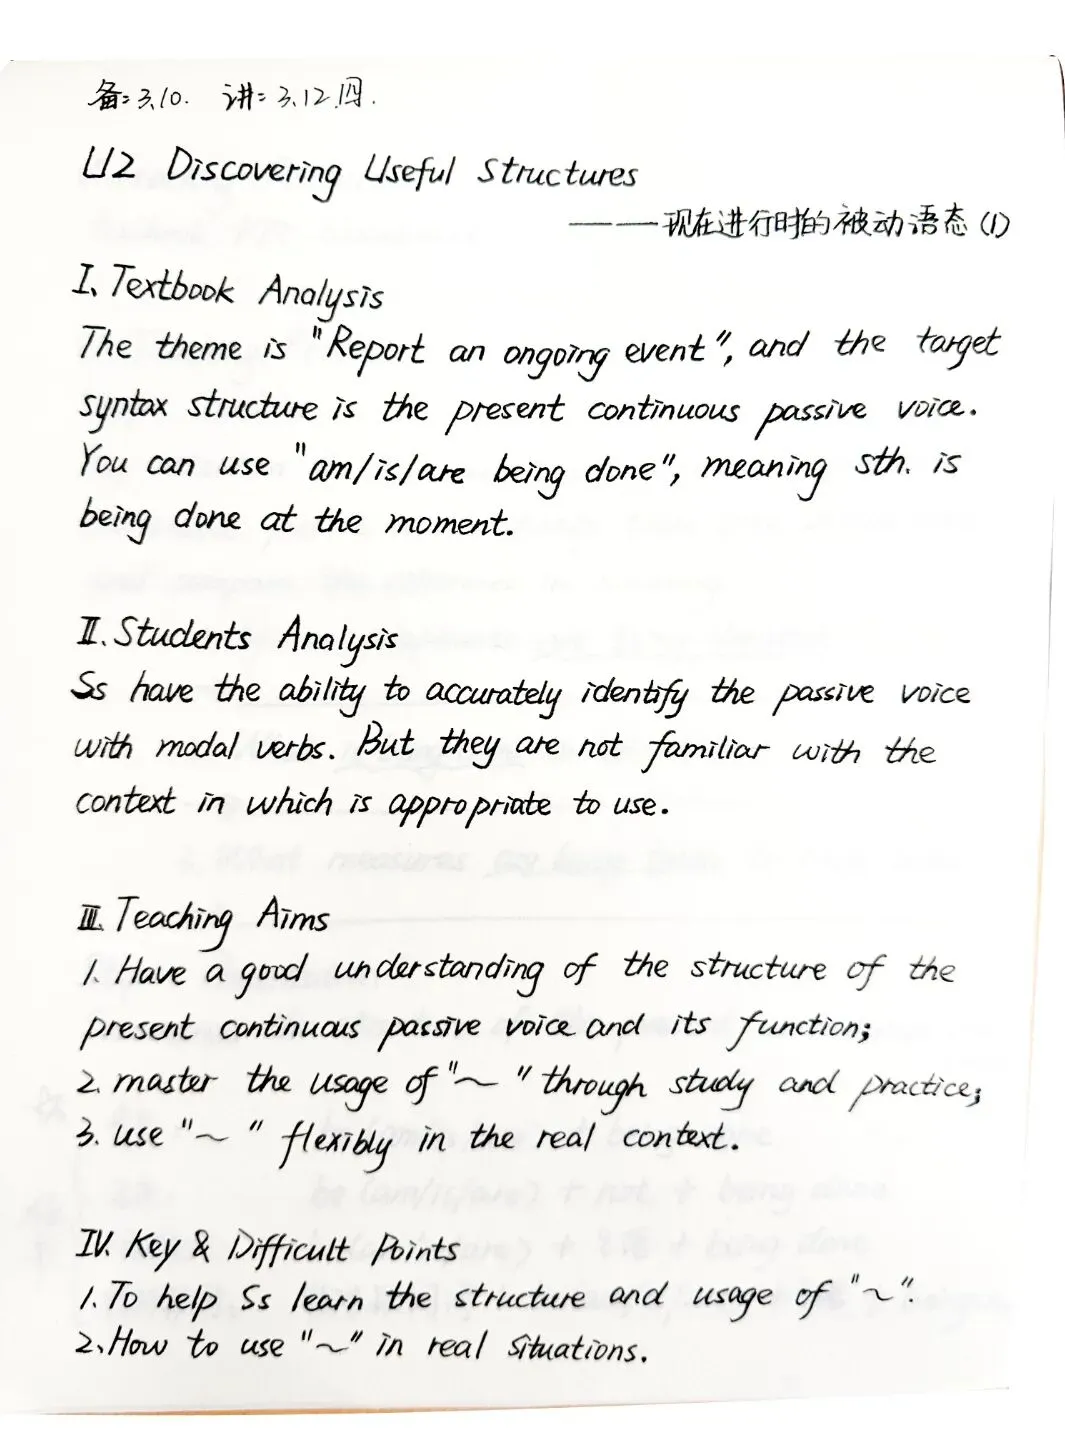 备:3.10. 讲:3.12.四.
U2 Discovering Useful Structures
——现在进行时的被动语态(1)
I、Textbook Analysis
The theme is "Report an ongoing event", and the target
syntax structure is the present continuous passive voice.
You can use "am/is/are being done", meaning sth. is
being done at the moment.
II. Students Analysis
Ss have the ability to accurately identify the passive voice
with modal verbs. But they are not familiar with the
context in which is appropriate to use.
III. Teaching Aims
1. Have a good understanding of the structure of the
present continuous passive voice and its function;
2. master the usage of "~" through study and practice;
3. use "~" flexibly in the real context.
IV. Key & Difficult Points
1. To help Ss learn the structure and usage of "~".
2、How to use "~" in real situations.